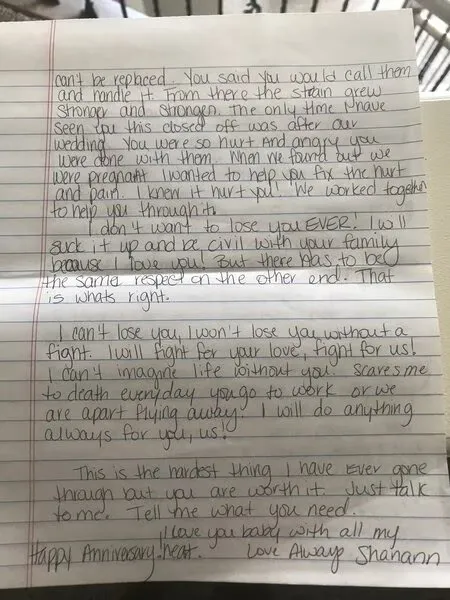 can't be replaced. You said you would call them
and handle it. From there the strain grew
stronger and stronger. The only time I have
seen you this closed off was after our
wedding. You were so hurt and angry you
were done with them. When we found out we
were pregnant I wanted to help you fix the hurt
and pain. I knew it hurt you! We worked together
to help you through it.
I don't want to lose you EVER! I will
suck it up and be civil with your family
because I love you! But there has to be
the same respect on the other end. That
is whats right.
I can't lose you, I won't lose you without a
fight. I will fight for your love, fight for us!
I can't imagine life without you. Scares me
to death everyday you go to work or we
are apart flying away! I will do anything
always for you, us!
This is the hardest thing I have Ever gone
through but you are worth it. Just talk
to me. Tell me what you need.
I love you baby with all my
Happy Anniversary! heart. Love Always Shanann